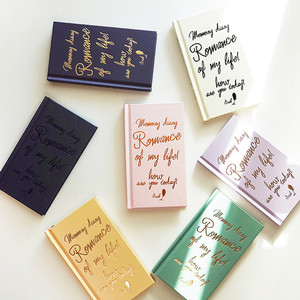 Memory diary
Romance
of my life!
how
are you today?
Memory diary
Romance
of my life!
how
are you today?
Memory diary
Romance
of my life!
how
are you today?
Memory diary
Romance
of my life!
how
are you today?
Memory diary
Romance
of my life!
how
are you today?
Memory diary
Romance
of my life!
how
are you today?